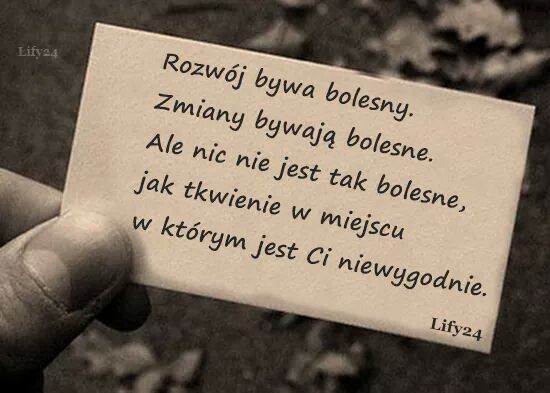 Lify24
Rozwój bywa bolesny.
Zmiany bywają bolesne.
Ale nic nie jest tak bolesne,
jak tkwienie w miejscu
w którym jest Ci niewygodnie.
Lify24